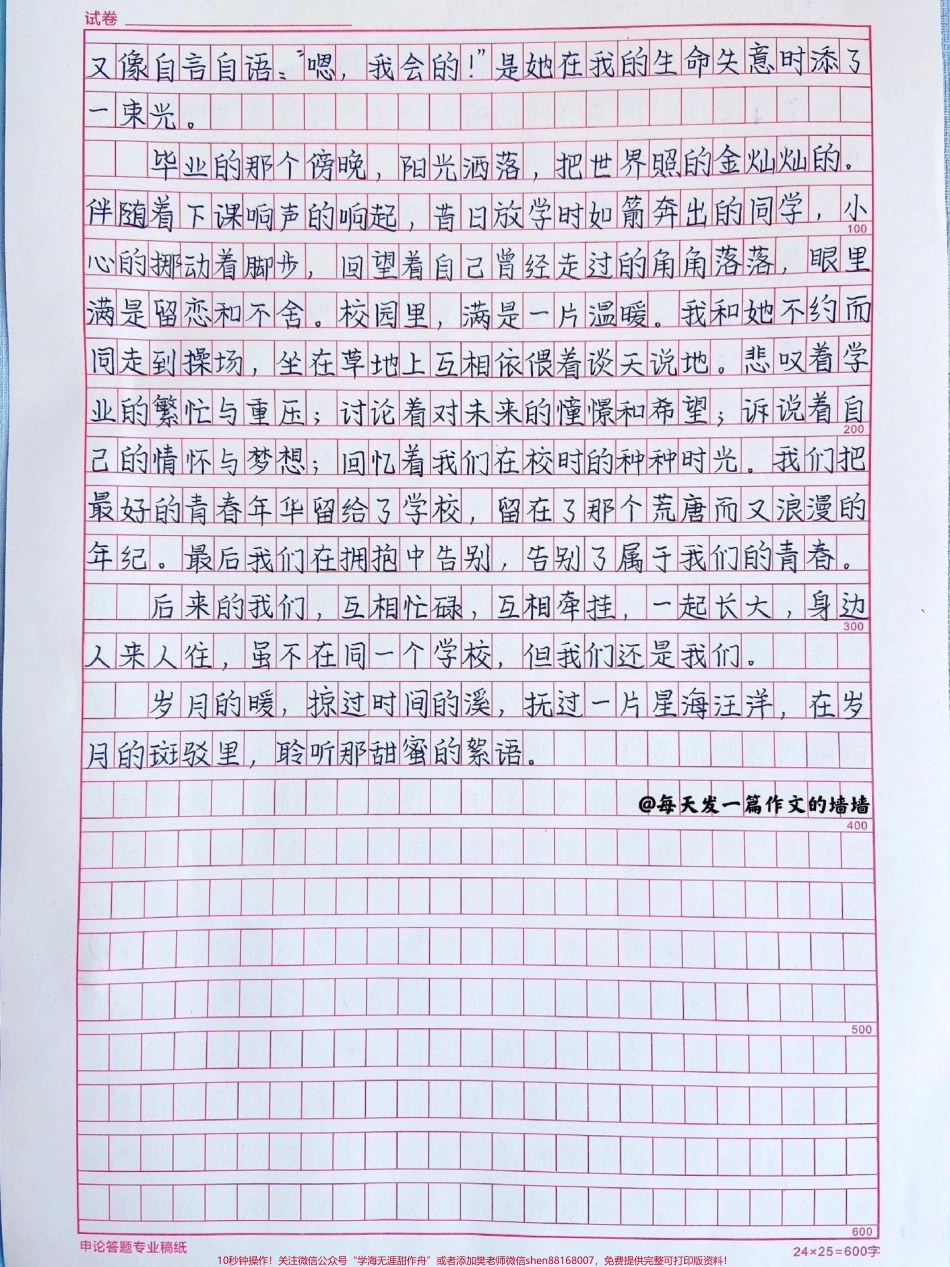 试卷
又像自言自语：“嗯，我会的！”是她在我的生命失意时添了
一束光。
毕业的那个傍晚，阳光洒落，把世界照的金灿灿的。
伴随着下课响声的响起，昔日放学时如箭奔出的同学，小
100
心的挪动着脚步，回望着自己曾经走过的角角落落，眼里
满是留恋和不舍。校园里，满是一片温暖。我和她不约而
同走到操场，坐在草地上互相依偎着谈天说地。悲叹着学
业的繁忙与重压；讨论着对未来的憧憬和希望；诉说着自
200
己的情怀与梦想；回忆着我们在校时的种种时光。我们把
最好的青春年华留给了学校，留在了那个荒唐而又浪漫的
年纪。最后我们在拥抱中告别，告别了属于我们的青春。
后来的我们，互相忙碌，互相牵挂，一起长大，身边
300
人来人往，虽不在同一个学校，但我们还是我们。
岁月的暖，掠过时间的溪，抚过一片星海汪洋，在岁
月的斑驳里，聆听那甜蜜的絮语。
@每天发一篇作文的墙墙
400
500
600
申论答题专业稿纸
24×25=600字
10秒钟操作！关注微信公众号“学海无涯甜作舟”或者添加樊老师微信shen88168007，免费提供完整可打印版资料！